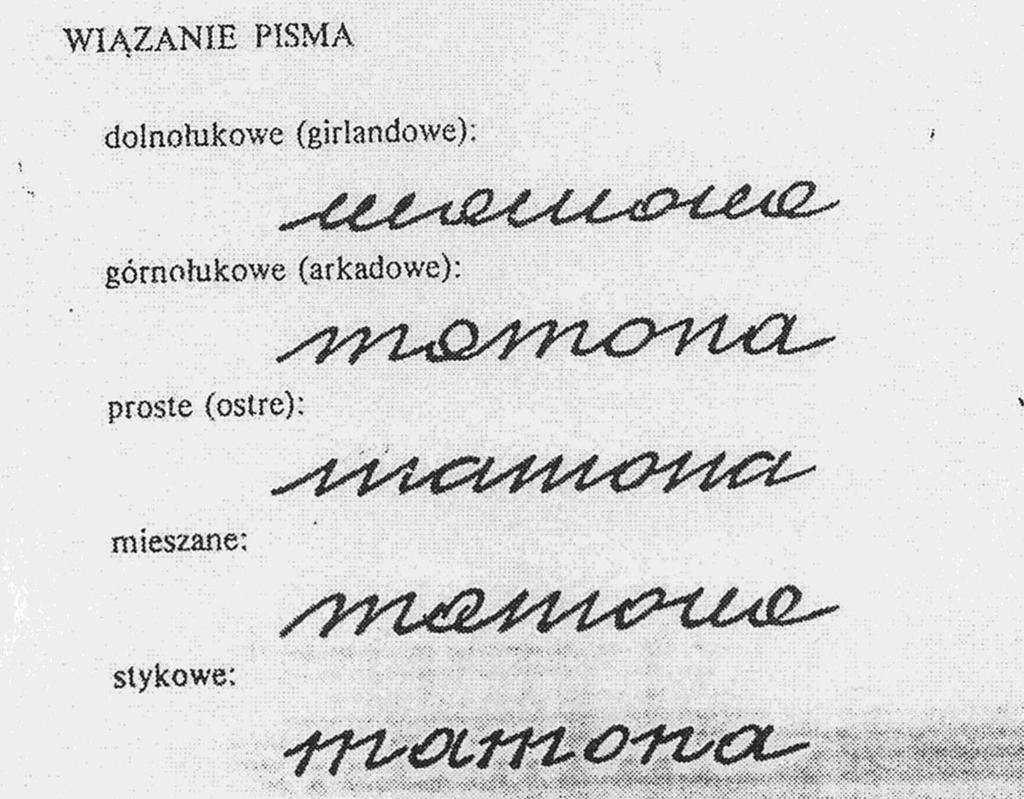 WIĄZANIE PISMA
dolnołukowe (girlandowe):
mamona
górnołukowe (arkadowe):
mamona
proste (ostre):
mamona
mieszane:
mamona
stykowe:
mamona